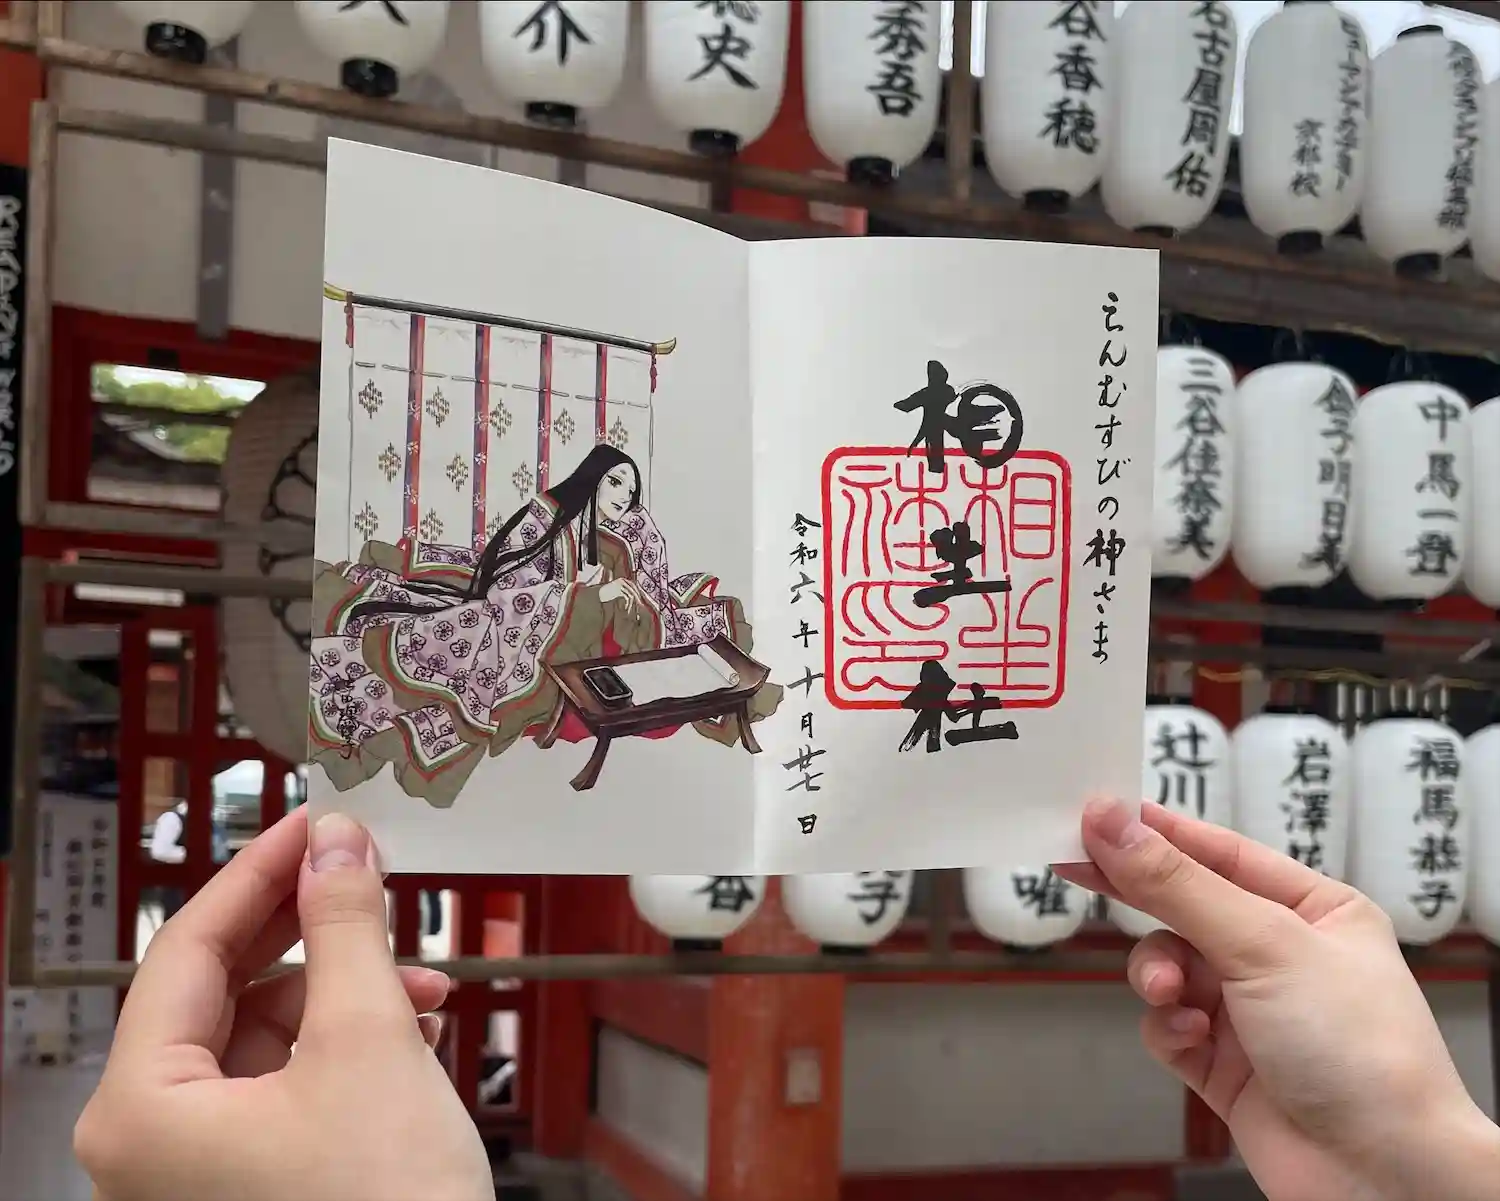 えんむすびの神さま
相生社
相生社印
令和六年十月廿七日
介
穂史
秀吾
谷香穂
名古屋周佑
ヒューマンアカデミー
京都校
三谷佳奈美
金子明日美
中馬一登
辻川
岩澤
福馬恭子
香
子
唯